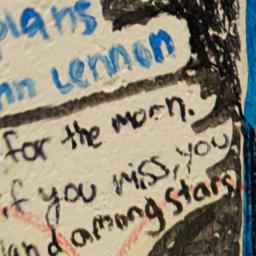 plans
nn Lennon
for the moon.
if you miss, you
land among stars